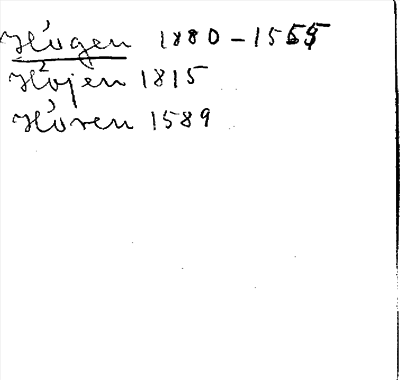 Hógen 1880 - 1555
Hójen 1815
Hóren 1589